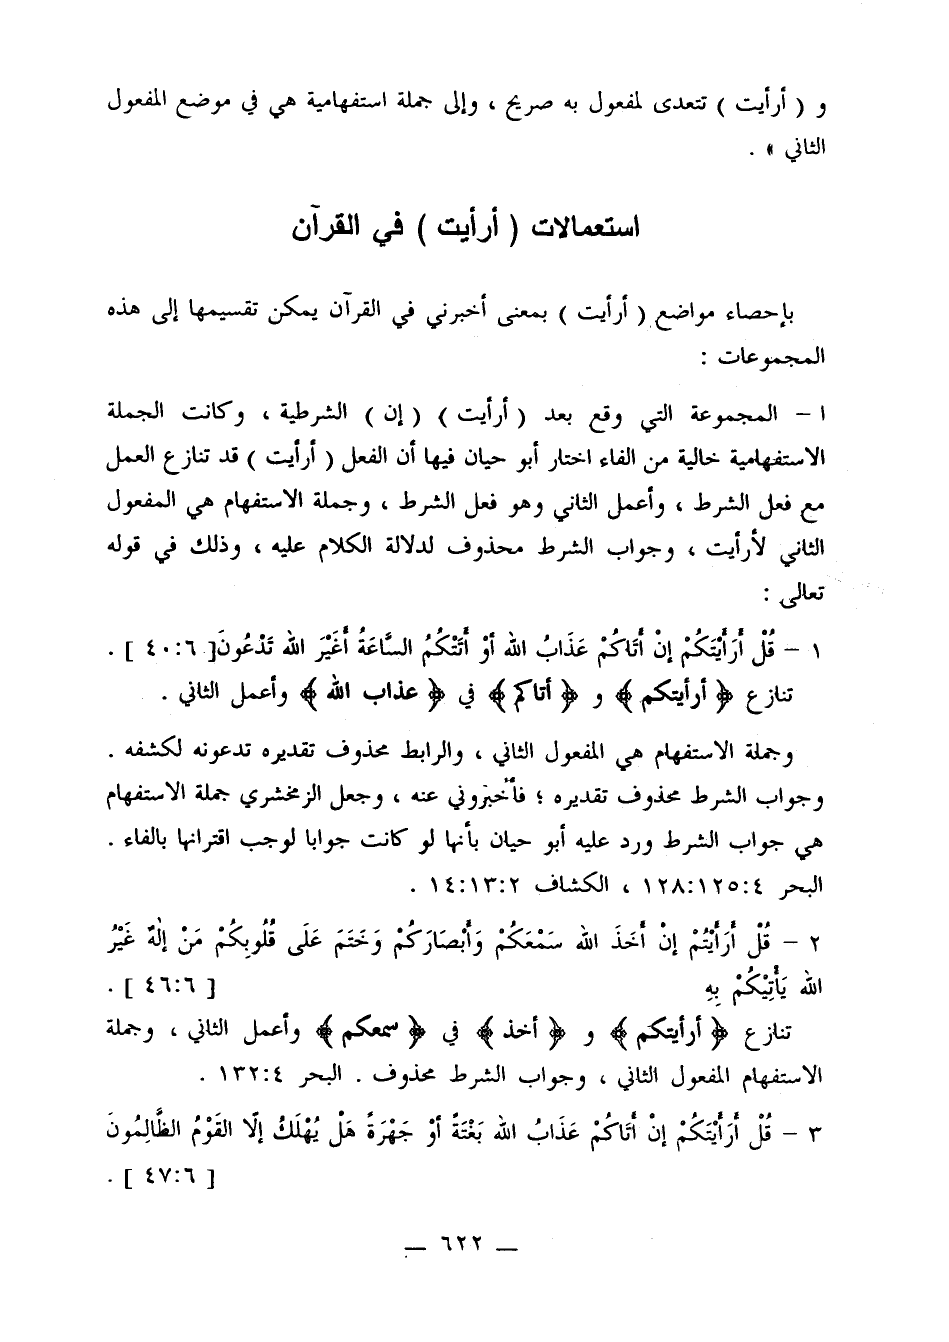 و ( أرأيت ) تتعدى لمفعول به صريح ، وإلى جملة استفهامية هي في موضع المفعول
الثاني » .
استعمالات ( أرأيت ) في القرآن
بإحصاء مواضع ( أرأيت ) بمعنى أخبرني في القرآن يمكن تقسيمها إلى هذه
المجموعات :
ا – المجموعة التي وقع بعد ( أرأيت ) ( إن ) الشرطية ، وكانت الجملة
الاستفهامية خالية من الفاء اختار أبو حيان فيها أن الفعل ( أرأيت ) قد تنازع العمل
مع فعل الشرط ، وأعمل الثاني وهو فعل الشرط ، وجملة الاستفهام هي المفعول
الثاني لأرأيت ، وجواب الشرط محذوف لدلالة الكلام عليه ، وذلك في قوله
تعالى :
١ – قُلْ أَرَأَيْتَكُمْ إنْ أَتَاكُمْ عَذَابُ الله أوْ أَتَتْكُمُ السَّاعَةُ أَغَيْرَ الله تَدْعُونَ [ ٦:٤٠ ] .
تنازع ﴿ أرأيتكم ﴾ و ﴿ أتاكم ﴾ في ﴿ عذاب الله ﴾ وأعمل الثاني .
وجملة الاستفهام هي المفعول الثاني ، والرابط محذوف تقديره تدعونه لكشفه .
وجواب الشرط محذوف تقديره ؛ فأخبروني عنه ، وجعل الزمخشري جملة الاستفهام
هي جواب الشرط ورد عليه أبو حيان بأنها لو كانت جوابا لوجب اقترانها بالفاء .
البحر ٤:١٢٥:١٢٨ ، الكشاف ٢:١٣:١٤ .
٢ – قُلْ أَرَأَيْتُمْ إنْ أَخَذَ الله سَمْعَكُمْ وَأَبْصَارَكُمْ وَخَتَمَ عَلَى قُلُوبِكُمْ مَنْ إلَهٌ غَيْرُ
الله يَأْتِيْكُمْ بِهِ [ ٦:٤٦ ] .
تنازع ﴿ أرأيتكم ﴾ و ﴿ أخذ ﴾ في ﴿ سمعكم ﴾ وأعمل الثاني ، وجملة
الاستفهام المفعول الثاني ، وجواب الشرط محذوف . البحر ٤:١٣٢ .
٣ – قُلْ أَرَأَيْتَكُمْ إنْ أَتَاكُمْ عَذَابُ الله بَغْتَةً أوْ جَهْرَةً هَلْ يُهْلَكُ إلَّا القَوْمُ الظَّالِمُونَ
[ ٦:٤٧ ] .
— ٦٢٢ —